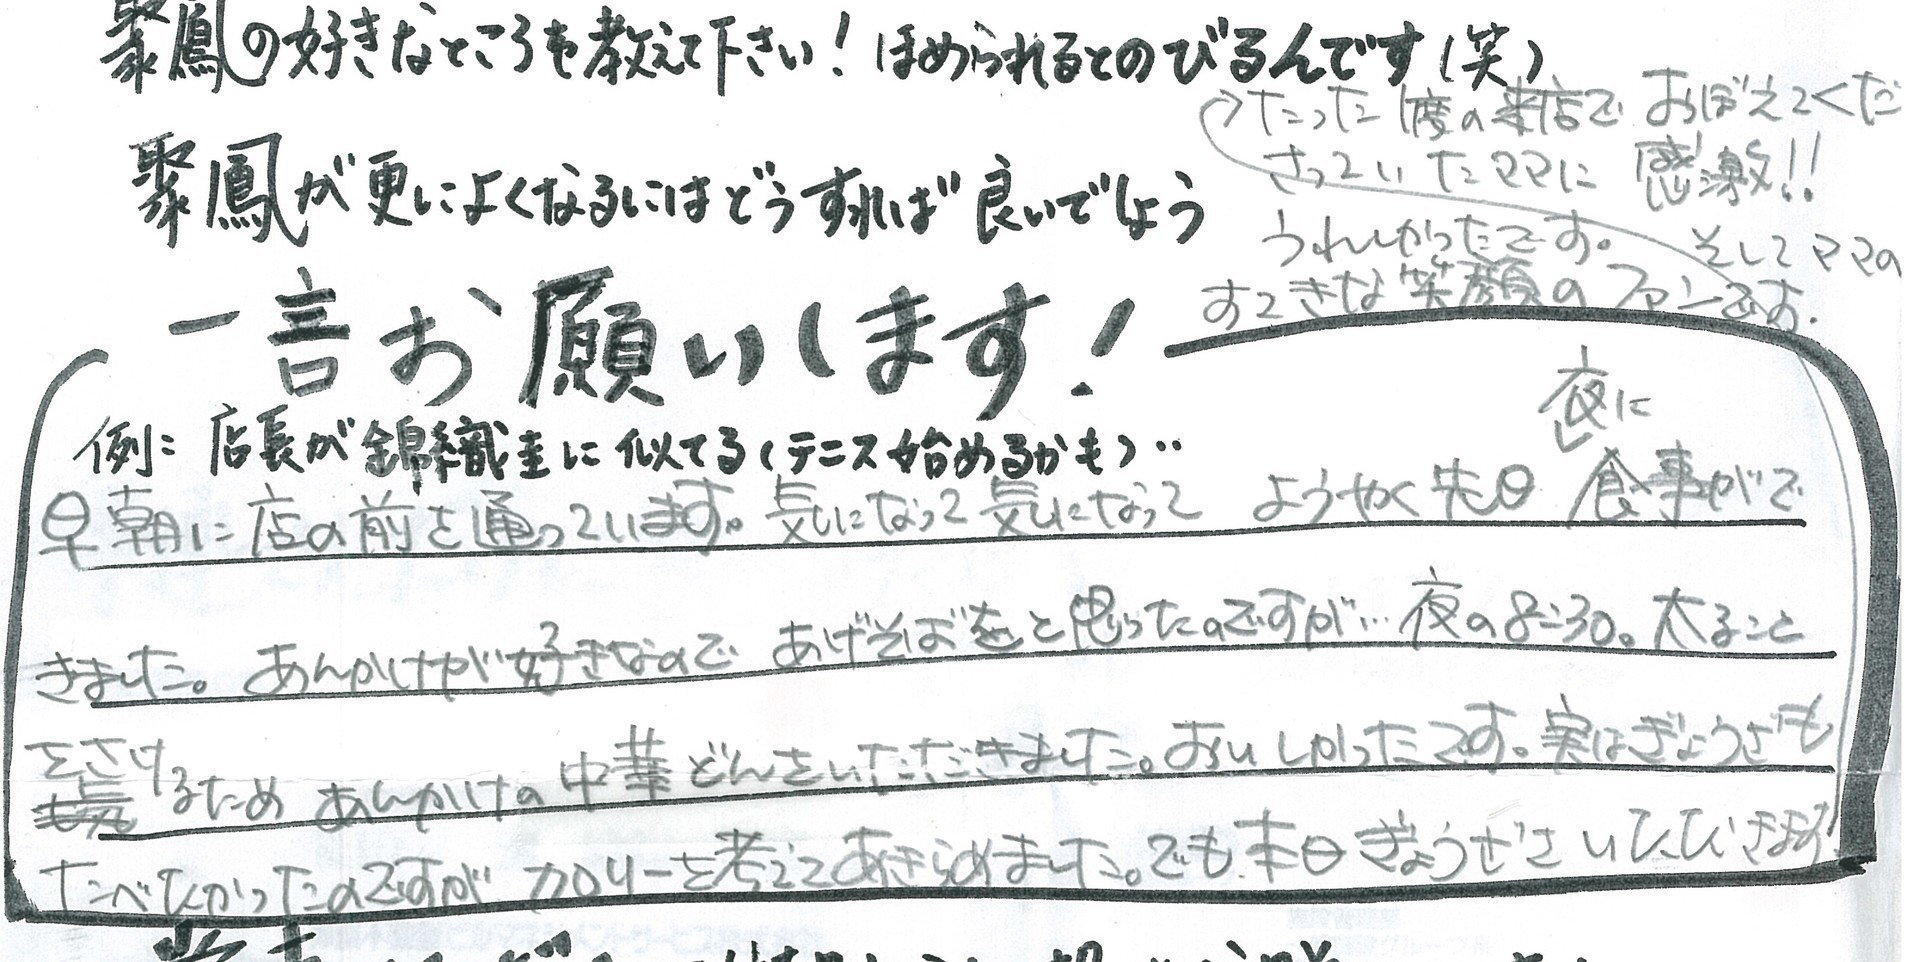 聚鳳の好きなところを教えて下さい！ほめられるとのびるんです（笑）
聚鳳が更によくなるにはどうすれば良いでしょう
一言お願いします！
例：店長が錦織圭に似てる（テニス始めるかも）‥
早朝に店の前を通っています。気になって気になって ようやく先日 夜に 食事がで
きました。あんかけが好きなので あげそばをと思ったのですが…夜の8:30。太ること
をさけるため あんかけの中華どんをいただきました。おいしかったです。実はぎょうざも
たべたかったのですが カロリーを考えてあきらめました。でも本日ぎょうざをいただきます。
たった1度の来店で おぼえてくだ
さっていたママに 感激!!
うれしかったです。 そしてママの
すてきな笑顔のファンです。